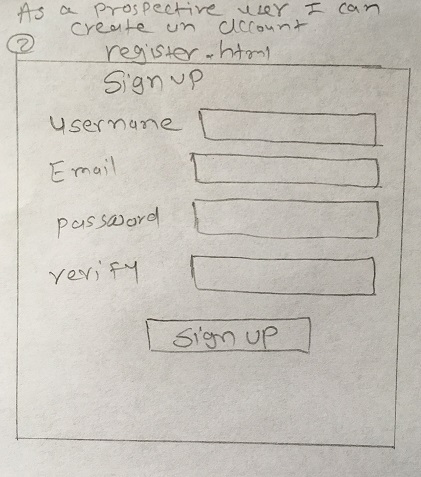 As a prospective user I can
create an account
② register.html
Sign up
username
Email
password
verify
Sign up